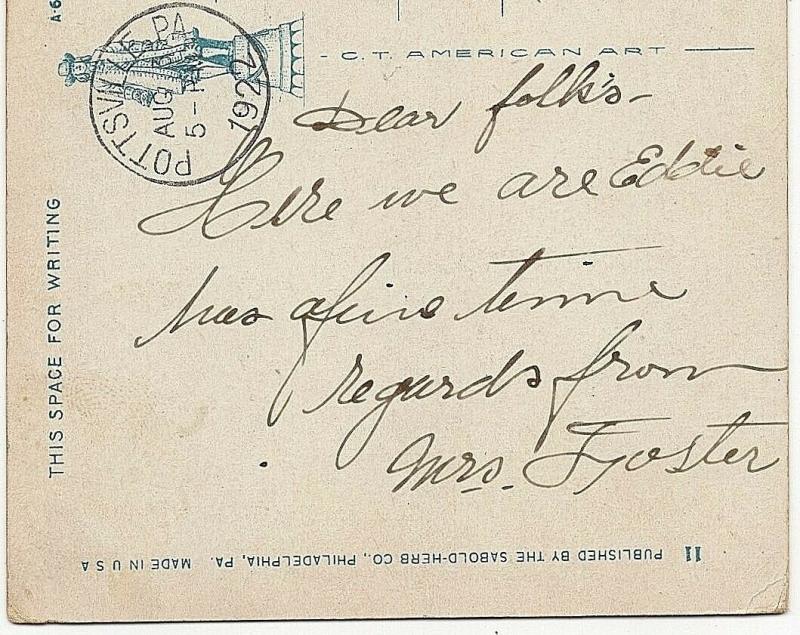 A-6
POTTSVILLE, PA.
AUG
5 - PM
1922
- C. T. AMERICAN ART
Dear folk's -
Here we are Eddie
has a fine time
regards from
Mrs. Foster
THIS SPACE FOR WRITING
11 PUBLISHED BY THE SABOLD-HERB CO., PHILADELPHIA, PA. MADE IN U S A